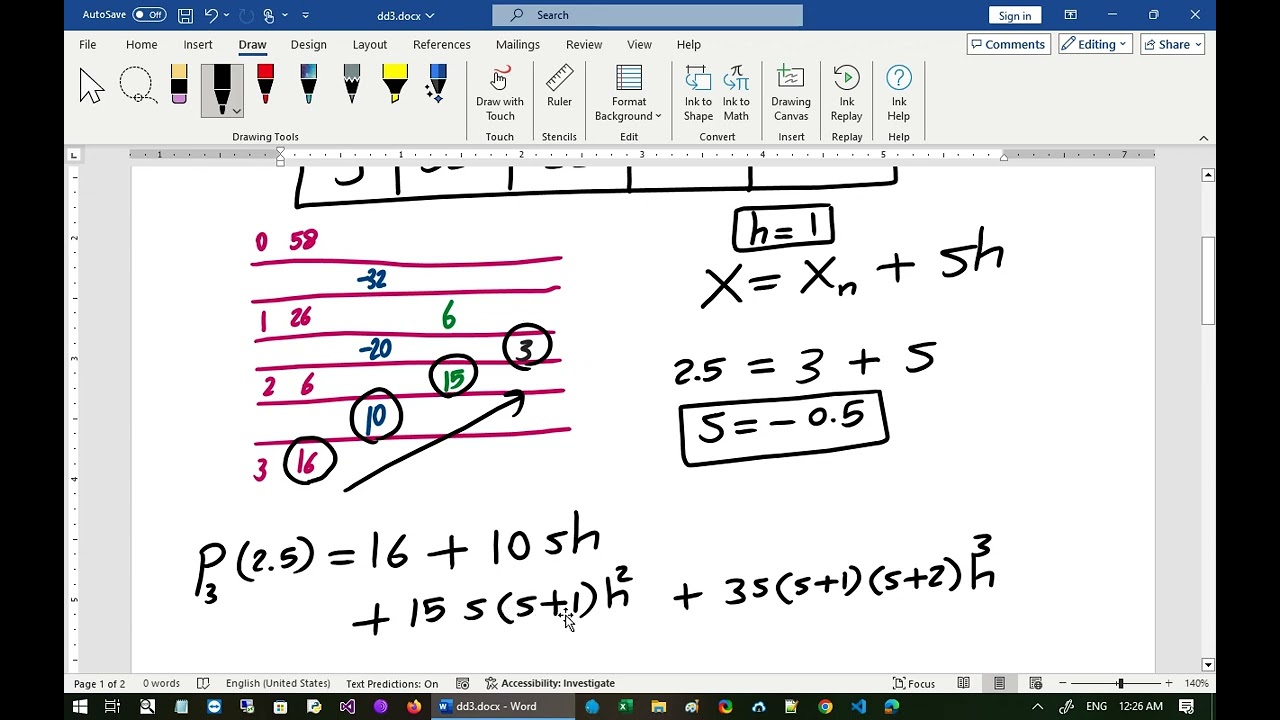 AutoSave Off dd3.docx Search Sign in
File Home Insert Draw Design Layout References Mailings Review View Help Comments Editing Share
Draw with Touch Ruler Format Background Ink to Shape Ink to Math Drawing Canvas Ink Replay Ink Help
Drawing Tools Touch Stencils Edit Convert Insert Replay Help
1 1 2 3 4 5 7
h = 1
0 58
-32
X = Xn + sh
1 26 6
-20 3
2 6 15
2.5 = 3 + s
10
s = -0.5
3 16
P3(2.5) = 16 + 10 sh
+ 15 s(s+1)h² + 3s(s+1)(s+2)h³
Page 1 of 2 0 words English (United States) Text Predictions: On Accessibility: Investigate Focus 140%
dd3.docx - Word ENG 12:26 AM